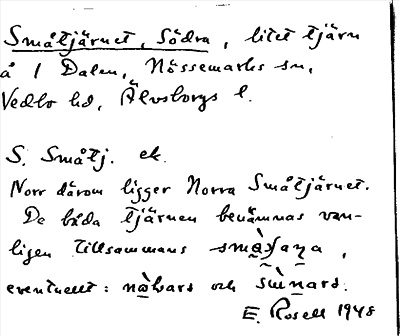 Småtjärnet, Södra, litet tjärn
å 1 Dalen, Nössemarks sn,
Vedbo hd, Älvsborgs l.
S. Småtj. ek.
Norr därom ligger Norra Småtjärnet.
De båda tjärnen benämnas van-
ligen tillsammans
eventuellt: och
E. Rosell 1948